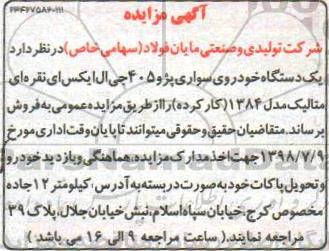 ۱۱۱-۲۳۴۲۷۵۸۲
آگهی مزایده
شرکت تولیدی وصنعتی مایان فولاد (سهامی خاص) در نظر دارد
یک دستگاه خودروی سواری پژو ۴۰۵ جی ال ایکس ای نقره ای
متالیک مدل ۱۳۸۴ (کار کرده) را از طریق مزایده عمومی به فروش
برساند. متقاضیان حقیق وحقوقی میتوانند تا پایان وقت اداری مورخ
۱۳۹۸/۷/۹ جهت اخذ مدارک مزایده، هماهنگی و بازدید خودرو
و تحویل پاکات خود به صورت در بسته به آدرس: کیلومتر ۱۲ جاده
مخصوص کرج، خیابان سپاه اسلام، نبش خیابان جلال، پلاک ۳۹
مراجعه نمایند. ( ساعت مراجعه ۹ الی ۱۶ می باشد )